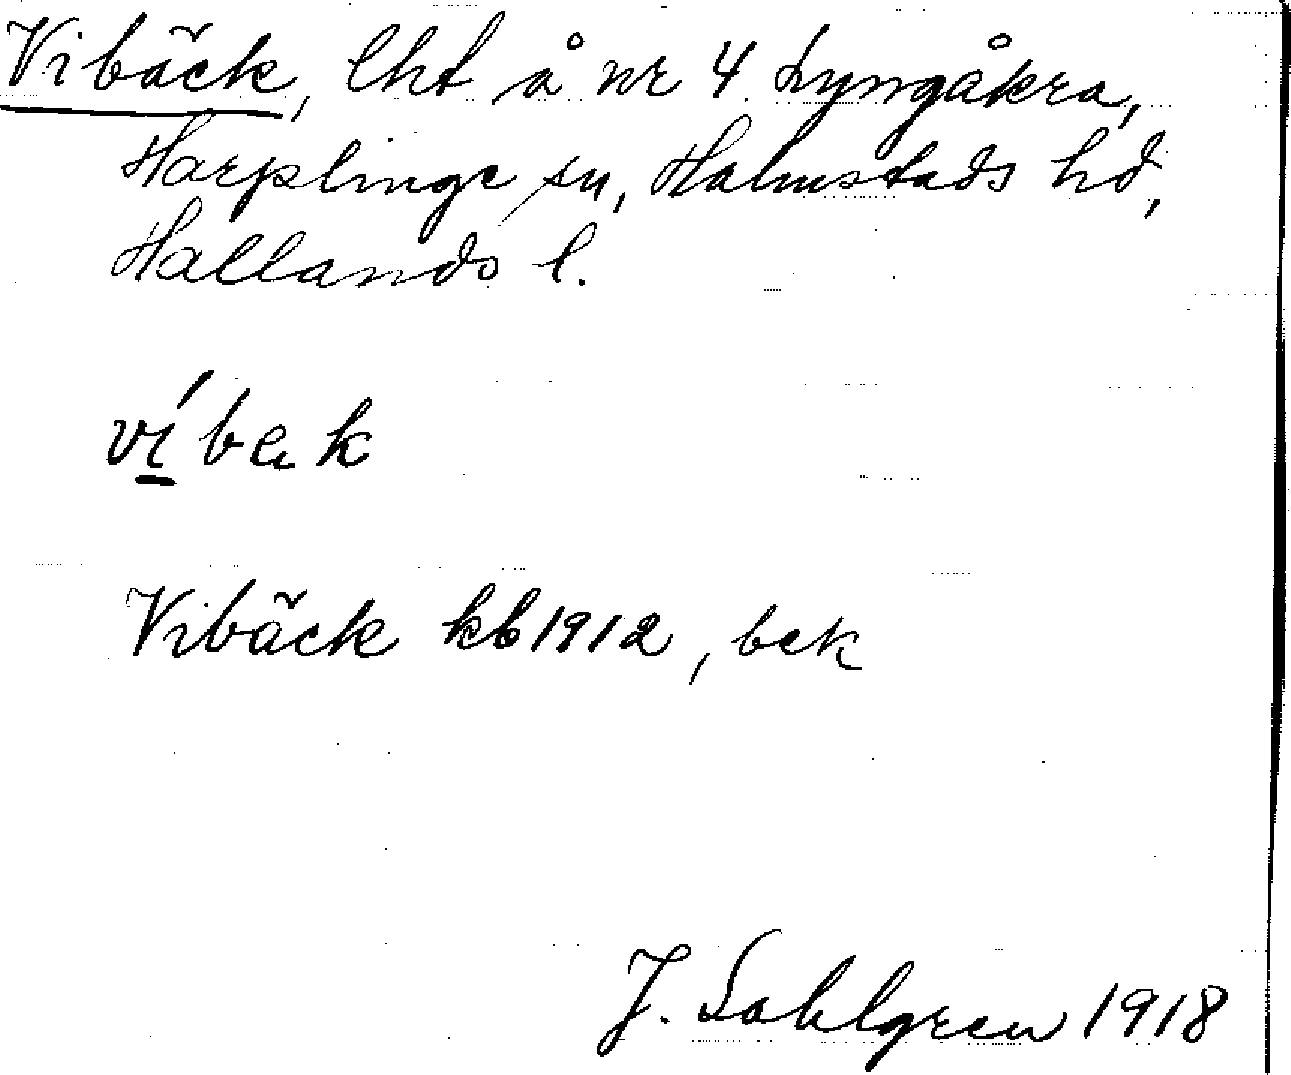 Vibäck, lht å nr 4 Lyngåkra,
Harplinge sn, Halmstads hd,
Hallands l.
víbæk
Vibäck kb 1912, bek
J. Sahlgren 1918